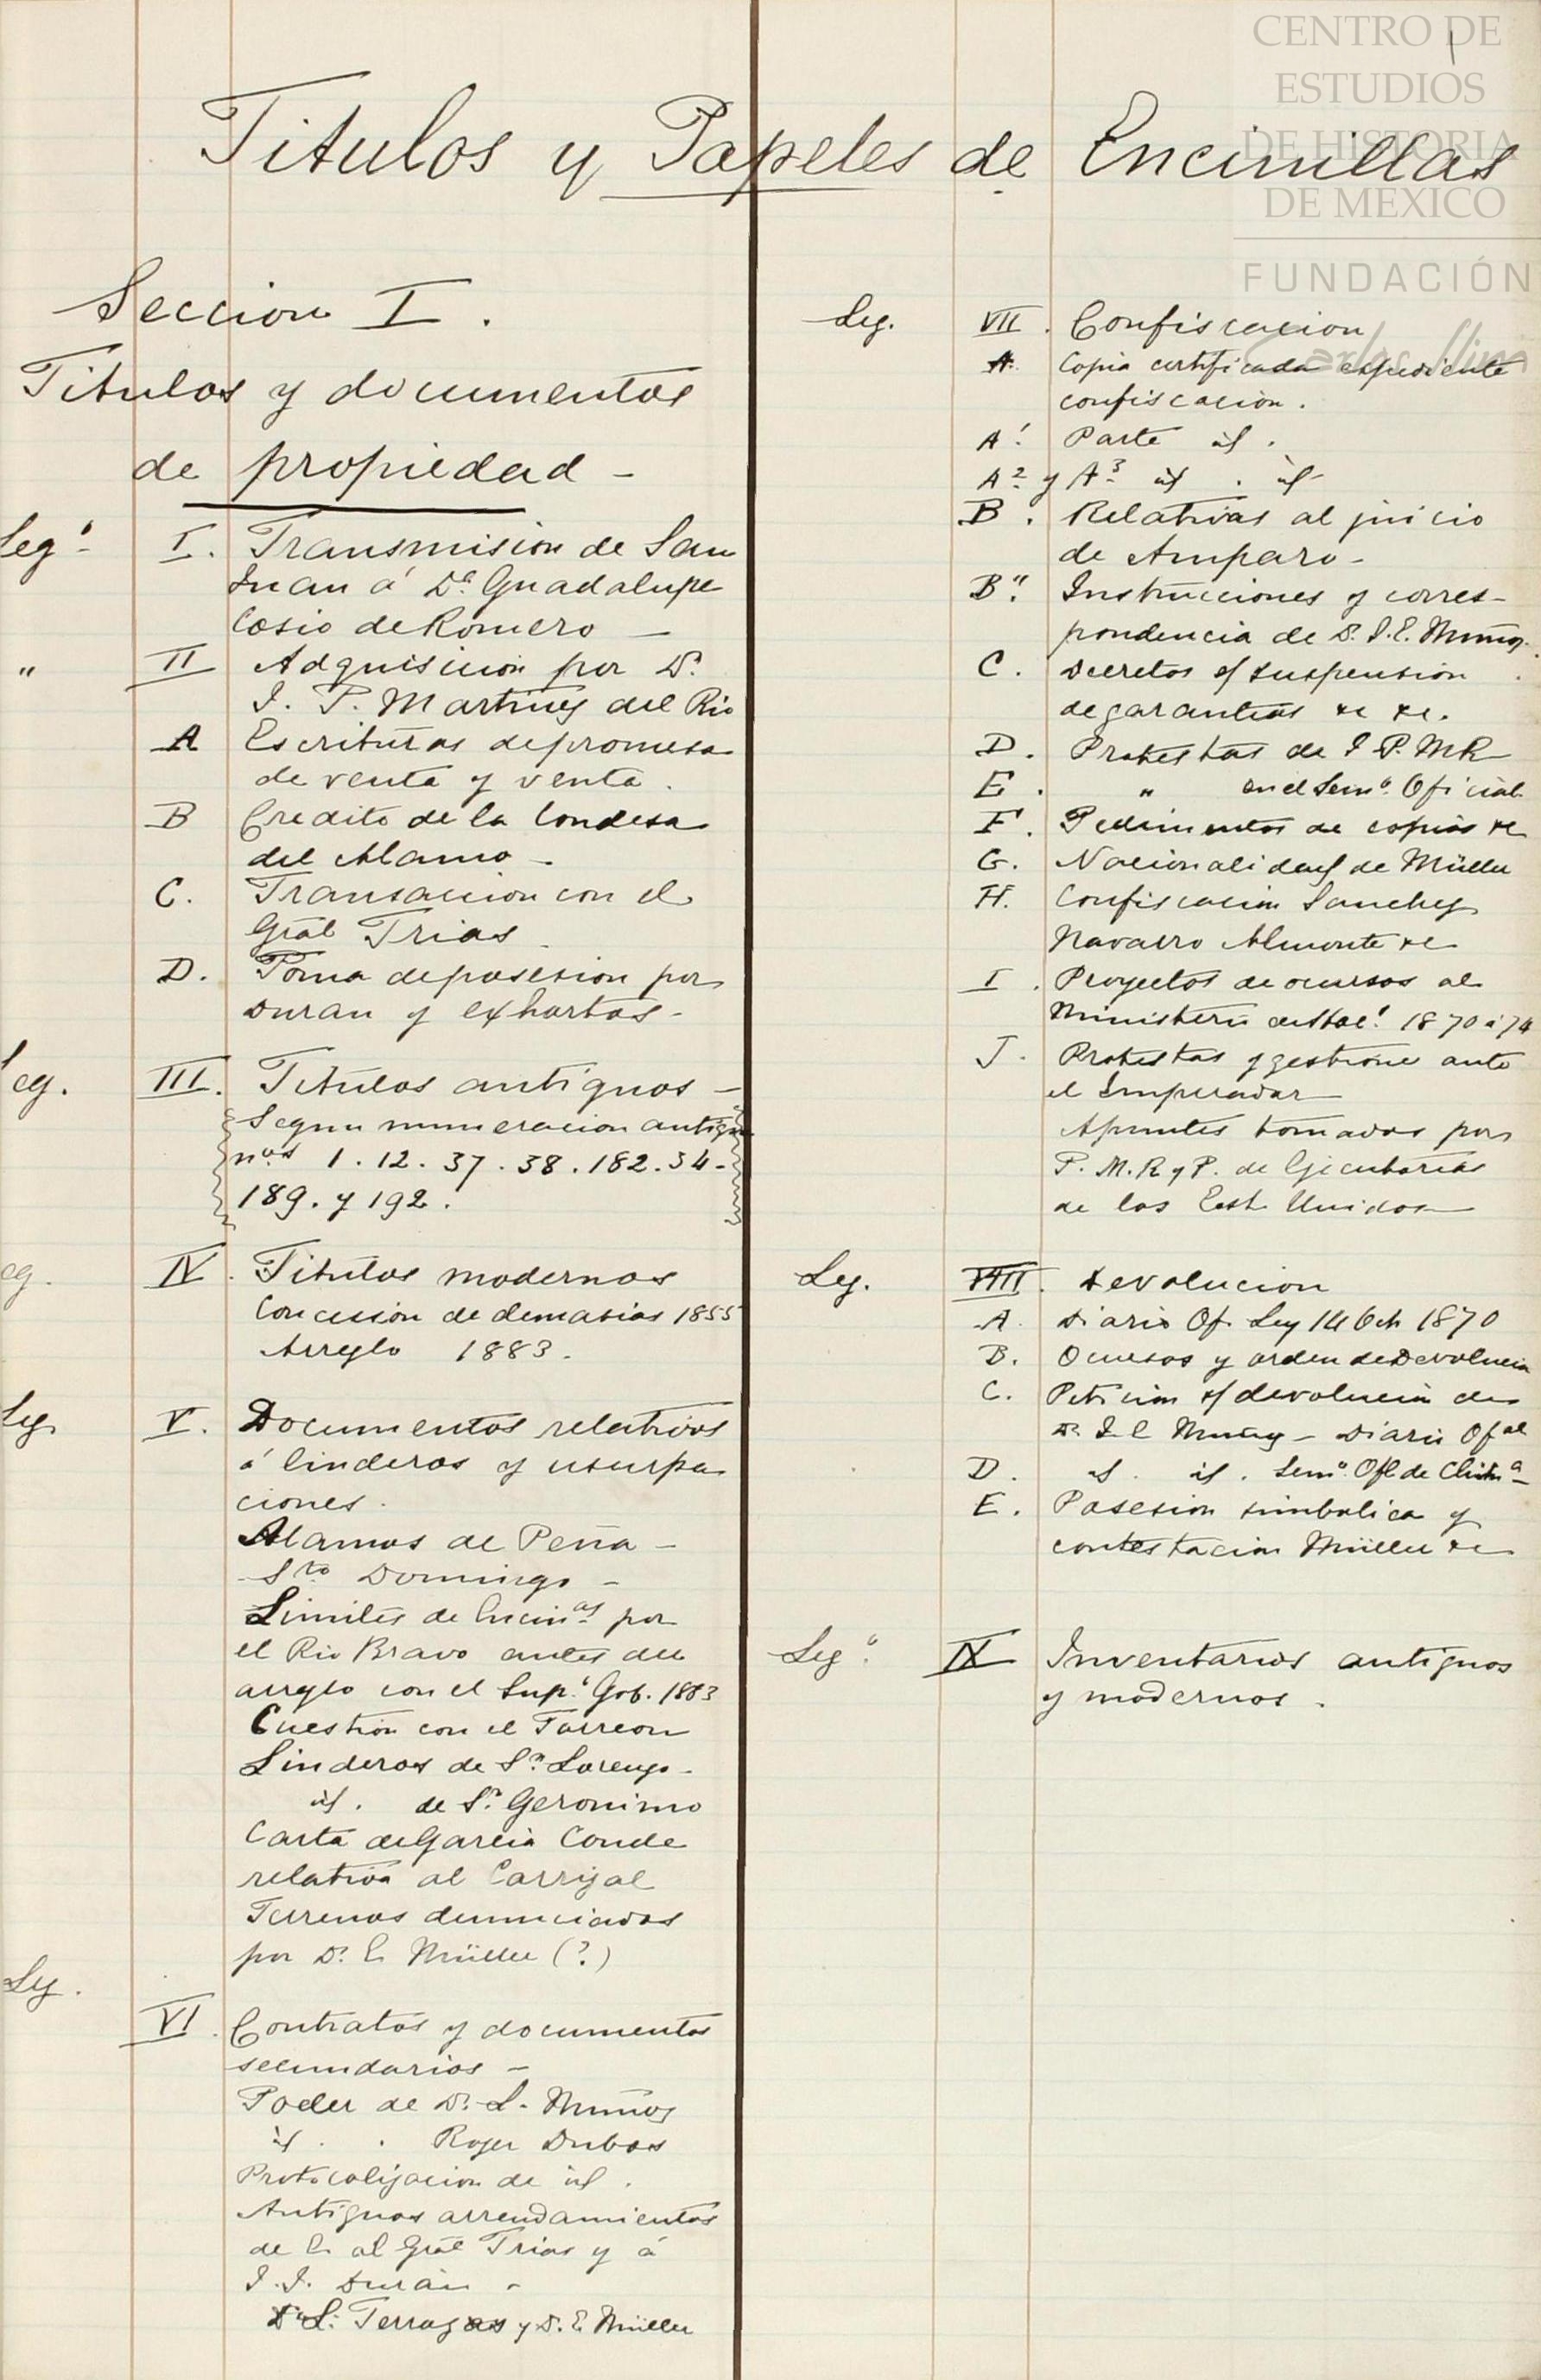 CENTRO DE
ESTUDIOS
DE HISTORIA
DE MEXICO
FUNDACIÓN
Carlos Slim
Titulos y Papeles de Encinillas
Seccion I.
Titulos y documentos
de propiedad -
Leg.º I. Transmision de San
Juan á Dª Guadalupe
Cosio de Romero —
" II Adquisicion por D.
J. P. Martinez del Rio
A Escrituras de promesa
de venta y venta.
B Credito de la Condesa
del Alamo -
C. Transaccion con el
Gral Trias
D. Toma de posesion por
Duran y exhortos -
Leg. III. Titulos antiguos -
Segun numeracion antigua
nos 1. 12. 37. 38. 182. 34-
189. y 192.
eg. IV. Titulos modernos
Concesion de demasias 1855
Arreglo 1883.
Leg V. Documentos relativos
á linderos y usurpa
ciones.
Alamos de Peña -
Sto Domingo -
Limites de Encinas por
el Rio Bravo antes del
arreglo con el Supº Gob. 1883
Cuestion con el Torreon
Linderos de Sn Lorenzo -
id. de Sn Geronimo
Carta de Garcia Conde
relativa al Carrizal
Terrenos denunciados
por D. E. Müller (?)
Leg.
VI. Contratos y documentos
secundarios -
Poder de D. L. Muñoz
id . . Roger Dubos
Protocolizacion de id.
Antiguos arrendamientos
de E. al Gral Trias y á
J. J. Durán -
Dn L. Terrazas y D. E. Müller
Leg. VII. Confiscacion
A. Copia certificada expediente
confiscación.
A¹. Parte id.
A². y A³. id . id-
B. Relativas al juicio
de Amparo -
B". Instrucciones y corres-
pondencia de D. J. E. Muñoz.
C. Decretos s/ suspension
de garantias &c &c.
D. Protestas de J. P. MR
E. " en el Semº Oficial
F. Pedimentos de copias &c
G. Nacionalidad de Müller
H. Confiscacion Sanchez
Navarro Almonte &c
I. Proyectos de ocursos al
Ministerio 1870 á 74
J. Protestas y gestiones ante
el Emperador
Apuntes tomados por
P. M. R y P. de Ejecutorias
de los Est. Unidos
Leg. VIII. Devolucion
A. Diario Of. Ley 14 Oct 1870
B. Ocursos y orden de Devolucion
C. Peticion s/ devolucion de
D. J. E Muñoz - Diario Ofal
D. id. id. Semº Ofl de Chihª-
E. Posesion simbolica y
contestacion Müller &c
Legº. IX Inventarios antiguos
y modernos.